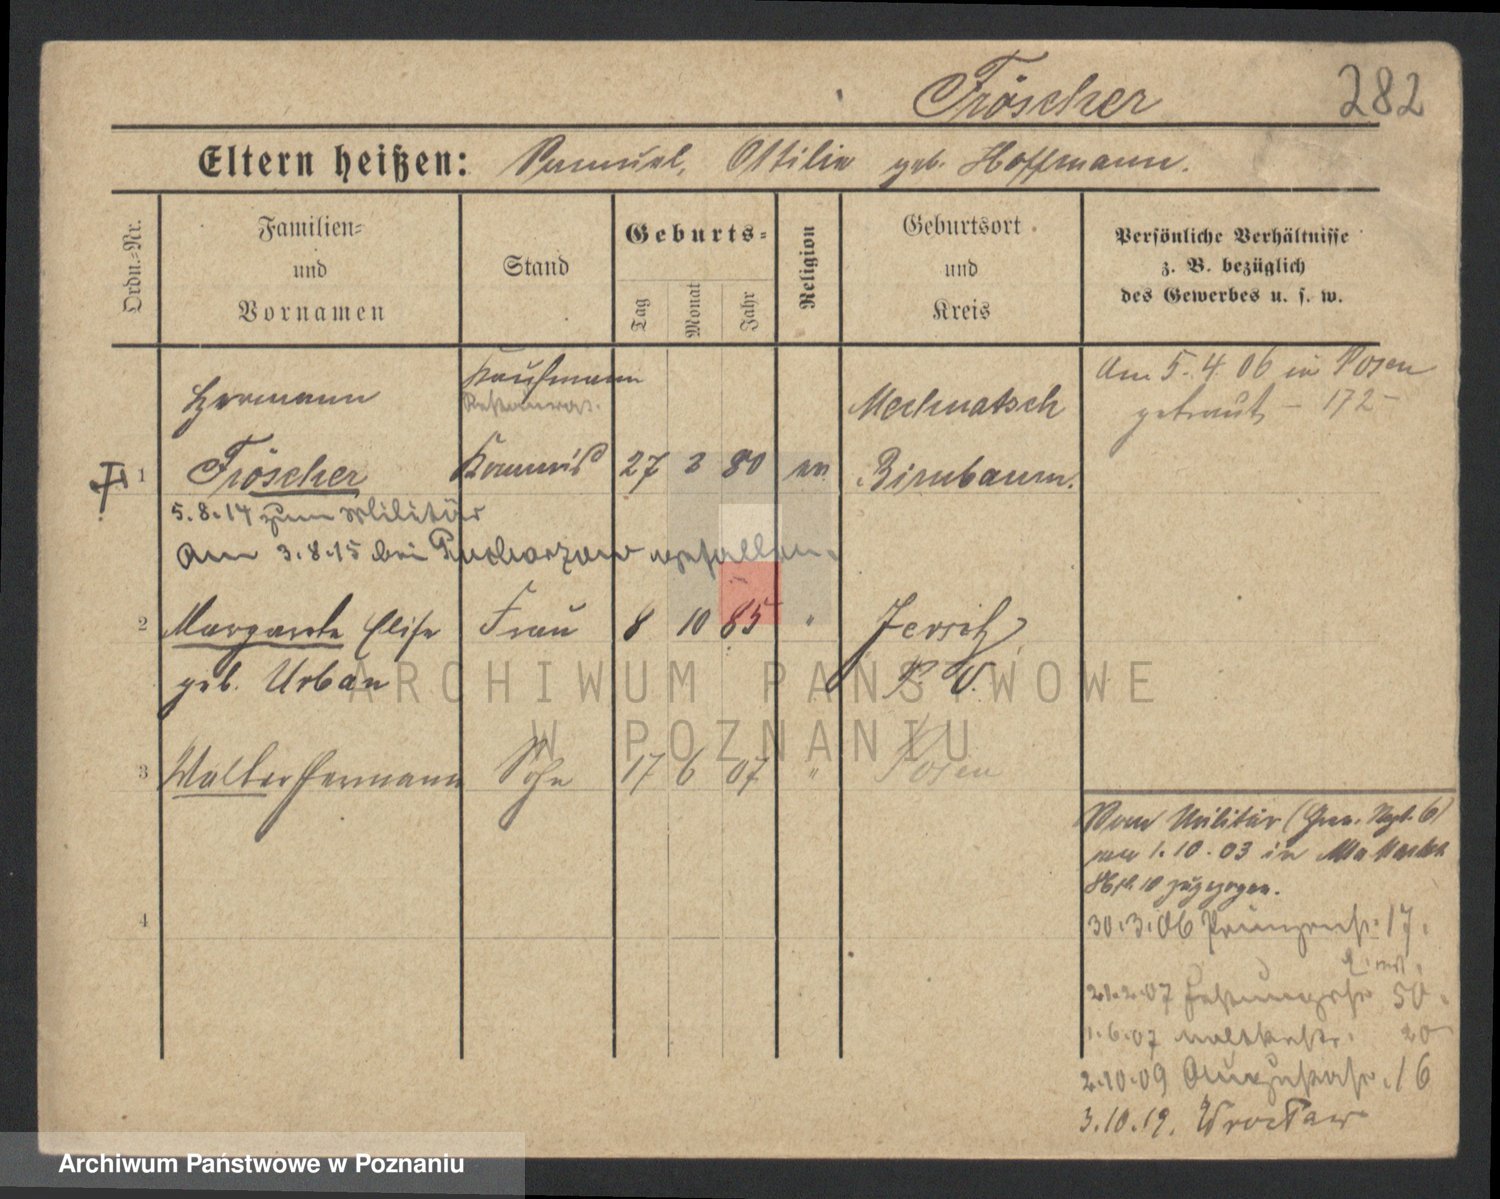 Fröscher 282
Eltern heißen: Samuel, Ottilie geb. Hoffmann.
Ordn.-Nr.
Familien-
und
Vornamen
Stand
Geburts-
Tag
Monat
Jahr
Religion
Geburtsort
und
Kreis
Persönliche Verhältnisse
z. B. bezüglich
des Gewerbes u. s. w.
Hermann Kaufmann Mechnatsch Am 5.4.06 in Posen
getraut - 172 -
1 Fröscher Kommis 27 3 80 ev. Birnbaum.
5.8.14 zum Militär
Am 3.8.15 bei gefallen.
2 Margarete Elise Frau 8 10 85 " Jersitz
geb. Urban P. W.
3 Walter Hermann Sohn 17 6 07 " Posen
4
Vom Militär (Gren. Rgt. 6)
am 1.10.03 in
zugezogen.
30.3.06 Prinzenstr. 17.
21.2.07 50.
1.6.07 Moltkestr. 20
2.10.09 Augustastr. 16
3.10.19. Wrocław
ARCHIWUM PAŃSTWOWE
W POZNANIU
Archiwum Państwowe w Poznaniu